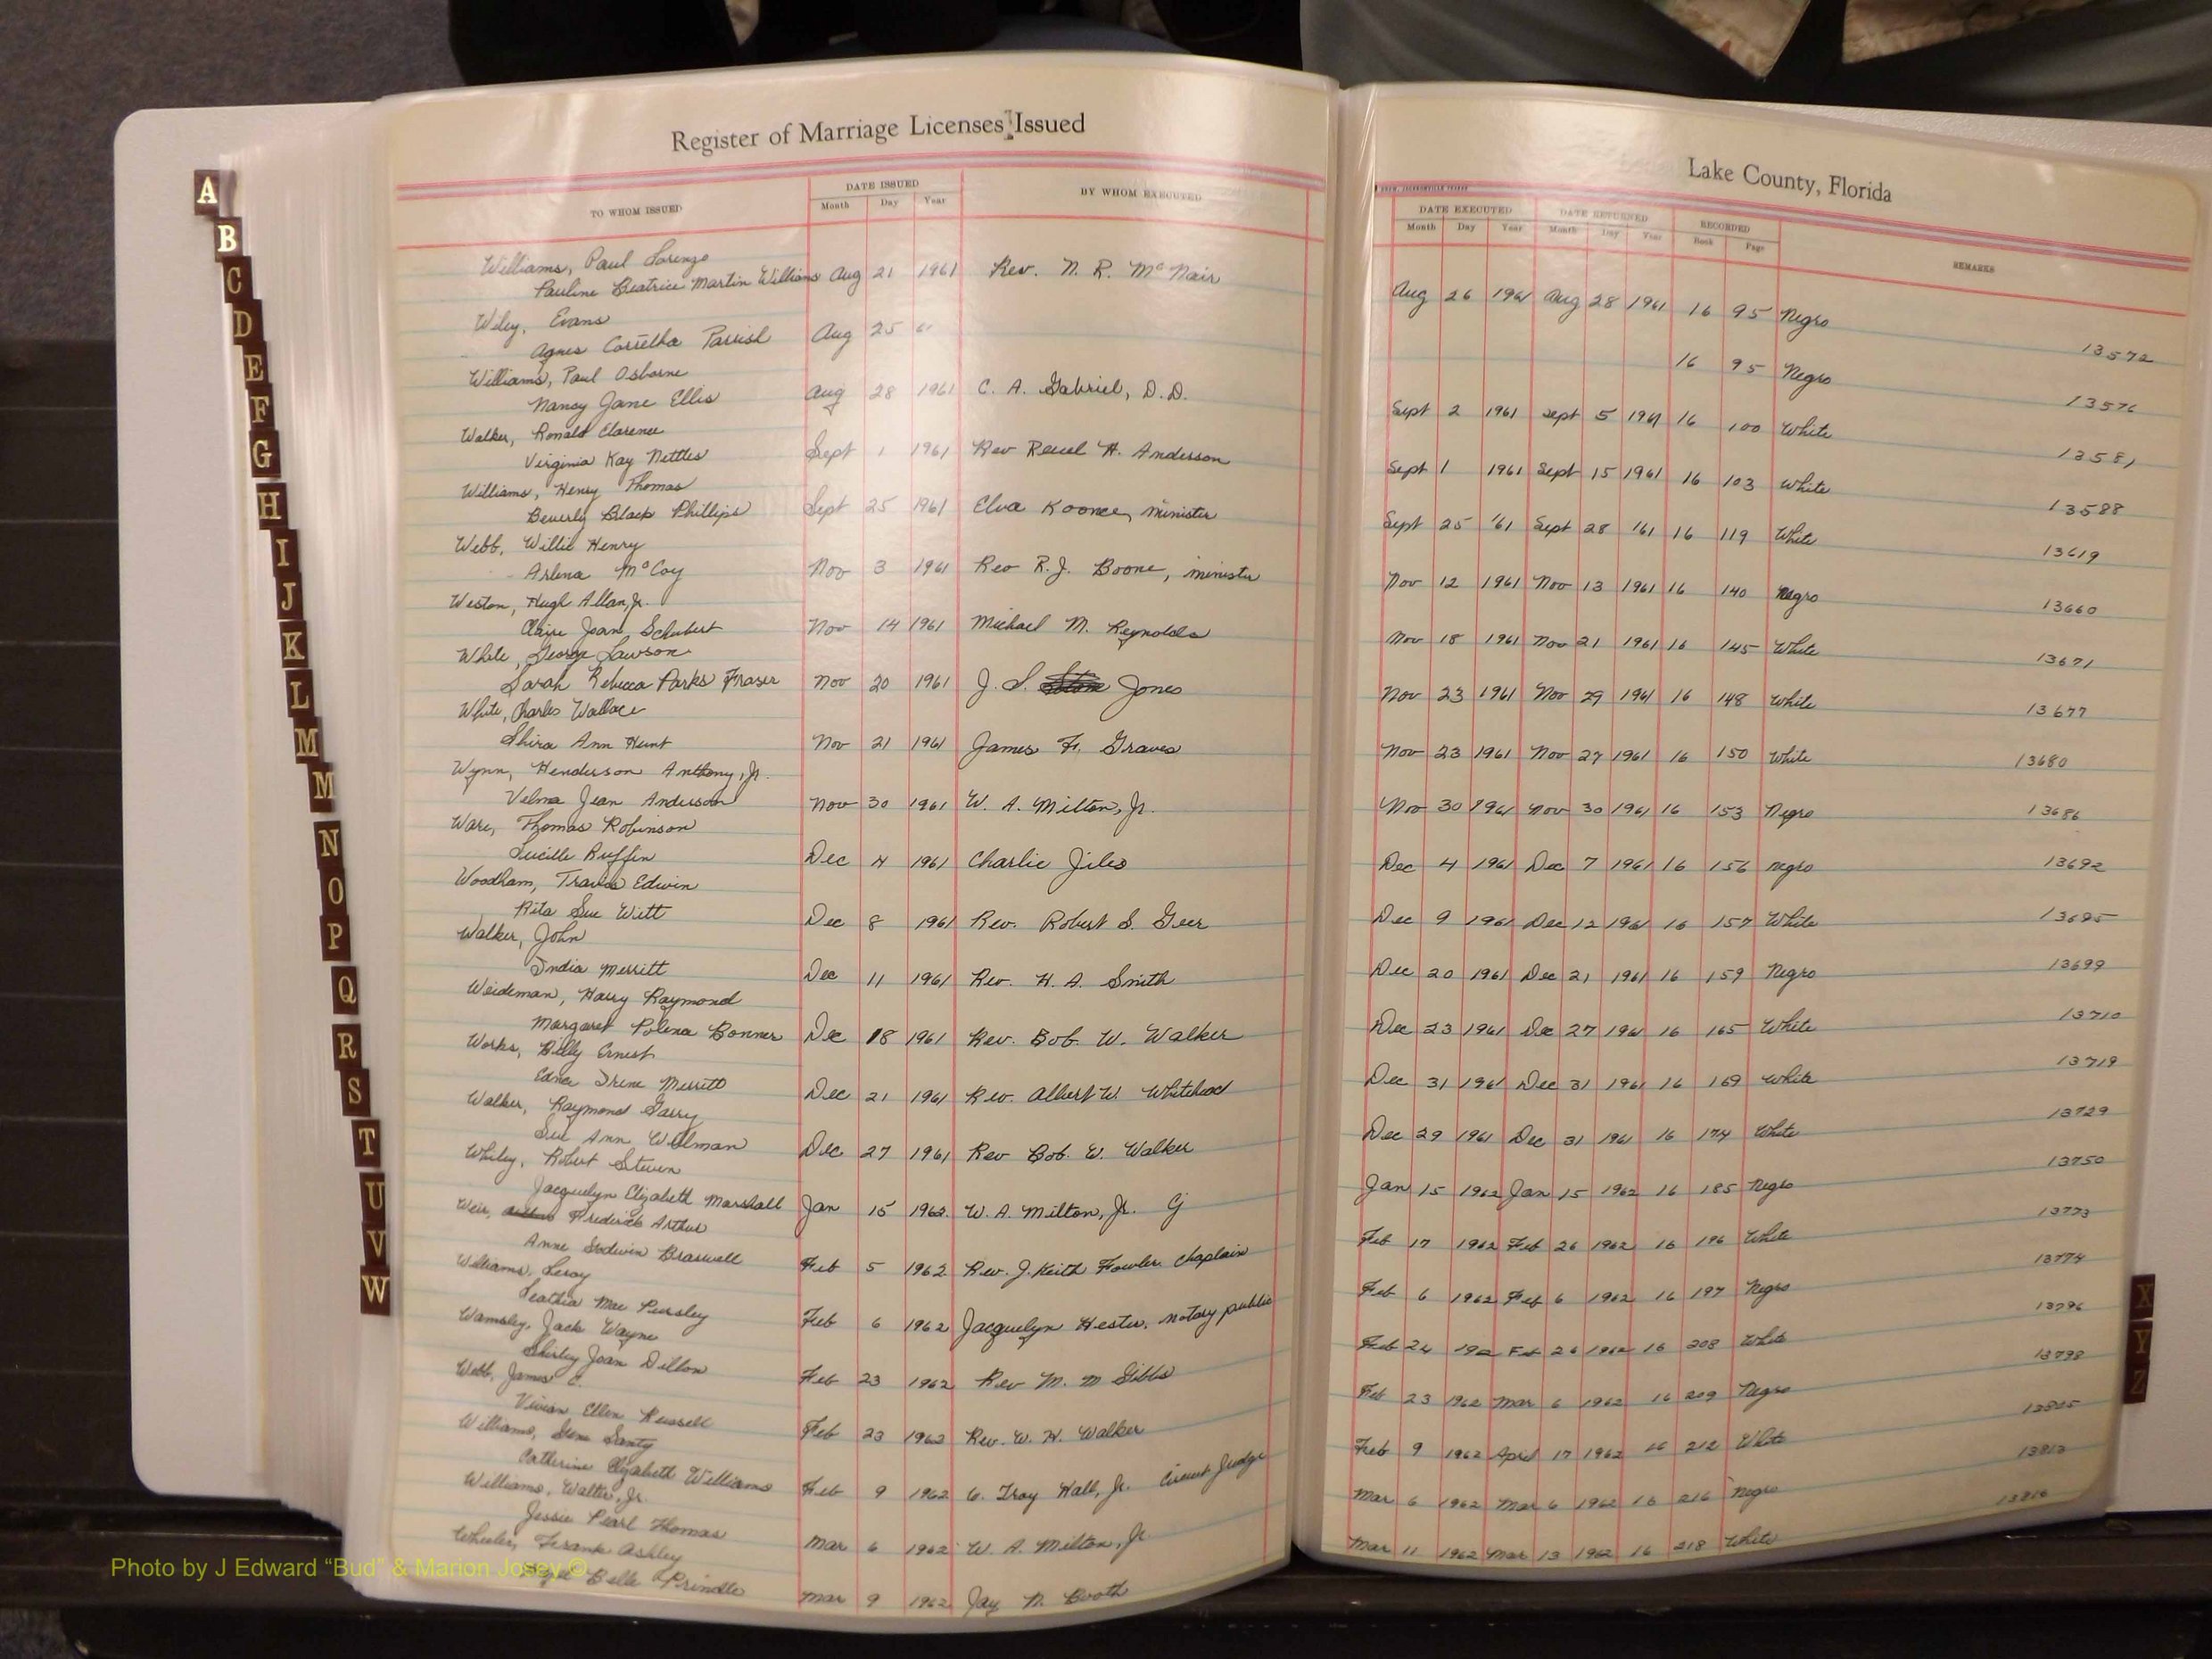 Register of Marriage Licenses Issued
TO WHOM ISSUED
DATE ISSUED
Month Day Year
BY WHOM EXECUTED
Williams, Paul Lorenzo
Pauline Beatrice Martin Williams Aug 21 1961 Rev. N. R. McNair
Wiley, Evans
Agnes Corretha Parrish Aug 25 61
Williams, Paul Osborne
Nancy Jane Ellis Aug 28 1961 C. A. Gabriel, D.D.
Walker, Ronald Clarence
Virginia Kay Nettles Sept 1 1961 Rev Reuel H. Anderson
Williams, Henry Thomas
Beverly Black Phillips Sept 25 1961 Elva Koonce, minister
Webb, Willie Henry
Arlena McCoy Nov 3 1961 Rev R.J. Boone, minister
Weston, Hugh Allan, Jr.
Claire Joan Schubert Nov 14 1961 Michael M. Reynolds
White, George Lawson
Sarah Rebecca Parks Fraser Nov 20 1961 J. S. Jones
White, Charles Wallace
Shira Ann Hunt Nov 21 1961 James F. Graves
Wynn, Henderson Anthony, Jr.
Velma Jean Anderson Nov 30 1961 W. A. Milton, Jr.
Ware, Thomas Robinson
Lucille Ruffin Dec 4 1961 Charlie Jiles
Woodham, Travis Edwin
Rita Sue Witt Dec 8 1961 Rev. Robert S. Geer
Walker, John
India Merritt Dec 11 1961 Rev. H. A. Smith
Weideman, Harry Raymond
Margaret Polena Bonner Dec 18 1961 Rev. Bob W. Walker
Works, Billy Ernest
Edna Irene Merritt Dec 21 1961 Rev. Albert W. Whitehead
Walker, Raymond Garry
Sue Ann Wellman Dec 27 1961 Rev Bob. W. Walker
Whiley, Robert Steven
Jacquelyn Elizabeth Marshall Jan 15 1962 W. A. Milton, Jr. CJ
Weir, Frederick Arthur
Anne Braswell Feb 5 1962 Rev. J. Keith Fowler chaplain
Williams, Leroy
Leathia Mae Pursley Feb 6 1962 Jacquelyn Hester, notary public
Wamsley, Jack Wayne
Shirley Joan Dillon Feb 23 1962 Rev M. M Gibbs
Webb, James C.
Vivian Ellen Russell Feb 23 1962 Rev. W. H. Walker
Williams,
Catherine Elizabeth Williams Feb 9 1962 W. Troy Hall, Jr. Circuit Judge
Williams, Walter, Jr.
Jessie Pearl Thomas Mar 6 1962 W. A. Milton, Jr
Wheeler, Frank Ashley
Belle Prindle Mar 9 1962 Jay N. Booth
Lake County, Florida
DATE EXECUTED DATE RETURNED RECORDED
Month Day Year Month Day Year Book Page
REMARKS
Aug 26 1961 Aug 28 1961 16 95 Negro
13572
16 95 Negro
13576
Sept 2 1961 Sept 5 1961 16 100 White
13581
Sept 1 1961 Sept 15 1961 16 103 White
13588
Sept 25 '61 Sept 28 '61 16 119 White
13619
Nov 12 1961 Nov 13 1961 16 140 Negro
13660
Nov 18 1961 Nov 21 1961 16 145 White
13671
Nov 23 1961 Nov 29 1961 16 148 White
13677
Nov 23 1961 Nov 27 1961 16 150 White
13680
Nov 30 1961 Nov 30 1961 16 153 Negro
13686
Dec 4 1961 Dec 7 1961 16 156 negro
13692
Dec 9 1961 Dec 12 1961 16 157 White
13695
Dec 20 1961 Dec 21 1961 16 159 Negro
13699
Dec 23 1961 Dec 27 1961 16 165 White
13710
Dec 31 1961 Dec 31 1961 16 169 White
13719
Dec 29 1961 Dec 31 1961 16 174 White
13729
Jan 15 1962 Jan 15 1962 16 185 Negro
13750
Feb 17 1962 Feb 26 1962 16 196 White
13773
Feb 6 1962 Feb 6 1962 16 197 Negro
13774
Feb 24 Feb 26 1962 16 208 White
13796
Feb 23 1962 Mar 6 1962 16 209 Negro
13798
Feb 9 1962 April 17 1962 16 212 White
13805
Mar 6 1962 Mar 6 1962 16 216 Negro
13813
Mar 11 1962 Mar 13 1962 16 218 White
13816
A
B
C
D
E
F
G
H
I
J
K
L
M
M
N
O
P
Q
R
S
T
U
V
W
X
Y
Z
Photo by J Edward “Bud” & Marion Josey ©